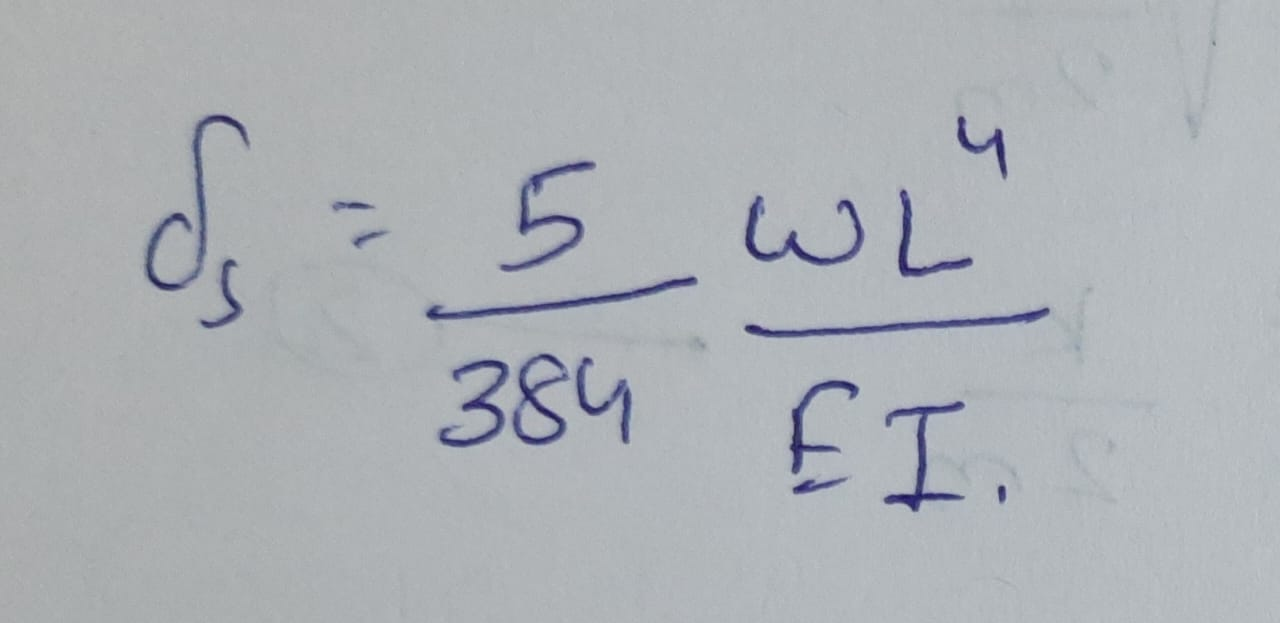 δs = 5/384 ωL⁴/EI.